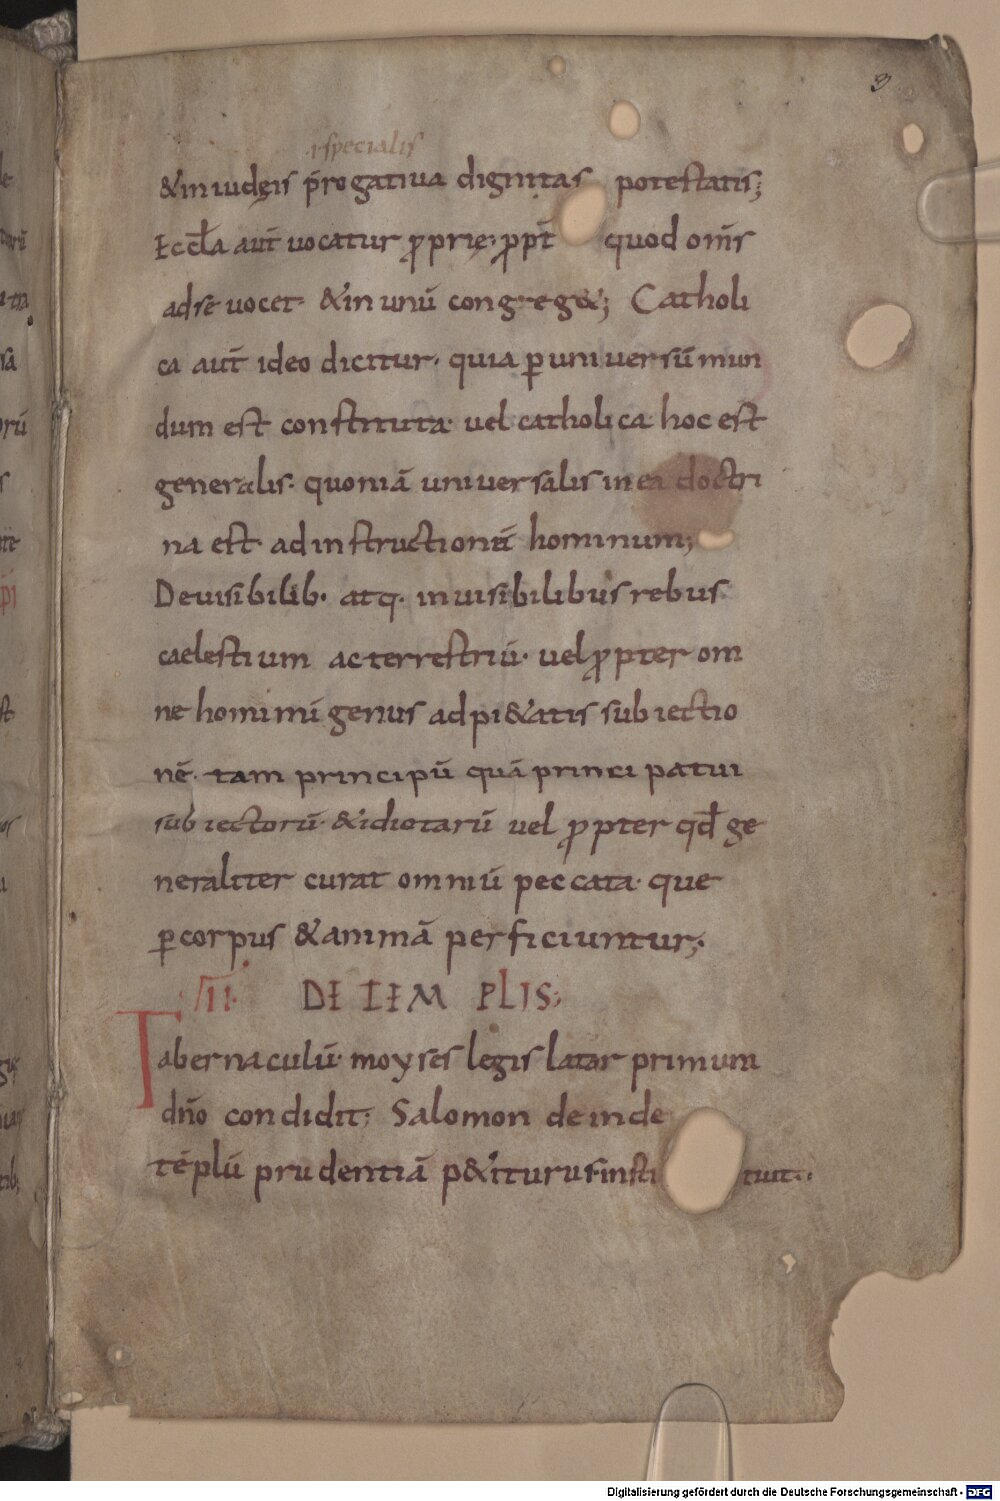 3
.i. specialis
&in iudęis p̄rogatiua dignitas potestatis;
Eccl̄a aut̄ uocatur ꝓprię; ꝓpt̄ quod om̄s
ad se uocet. &in unū congreg&; Catholi
ca aut̄ ideo dicitur. quia ꝑ uniuersū mun
dum est constituta. uel catholica hoc est
generalis. quoniā uniuersalis in ea doctri
na est. ad instructionē hominum;
De uisibilib. atq. inuisibilibus rebus
caelestium ac terrestriū. uel ꝓpter om
ne hominū genus ad pi&atis subiectio
nē. tam principū quā principatui
subiectorū &idiotarū uel ꝓpter qđ ge
neraliter curat omniū peccata. que
ꝑ corpus &animā perficiuntur;
VII. DE TEMPLIS;
Tabernaculū. moyses legis latar primum
dn̄o condidit; Salomon deinde
tēplū prudentiā p&iturus insti tuit.
Digitalisierung gefördert durch die Deutsche Forschungsgemeinschaft - DFG